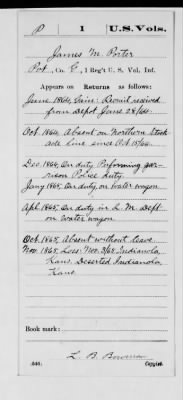 P 1 U.S. Vols.
James M. Porter
Pvt., Co. E, 1 Reg't U. S. Vol. Inf.
Appears on Returns as follows:
June 1864, Gain: Recruit received
from Depot June 28/64.
Oct. 1864, Absent on Northern Stock
ade line since Oct. 15/64.
Dec. 1864, On duty Performing gar-
rison Police duty.
Jany 1865, On duty on water wagon
Apl. 1865, On duty in Q. M. Dept
on water wagon.
Oct. 1865, Absent without leave
Nov. 1865, Loss: Nov. 3/65, Indianola
Kans. Deserted Indianola
Kans.
Book mark:
L. B. Bowman
Copyist.